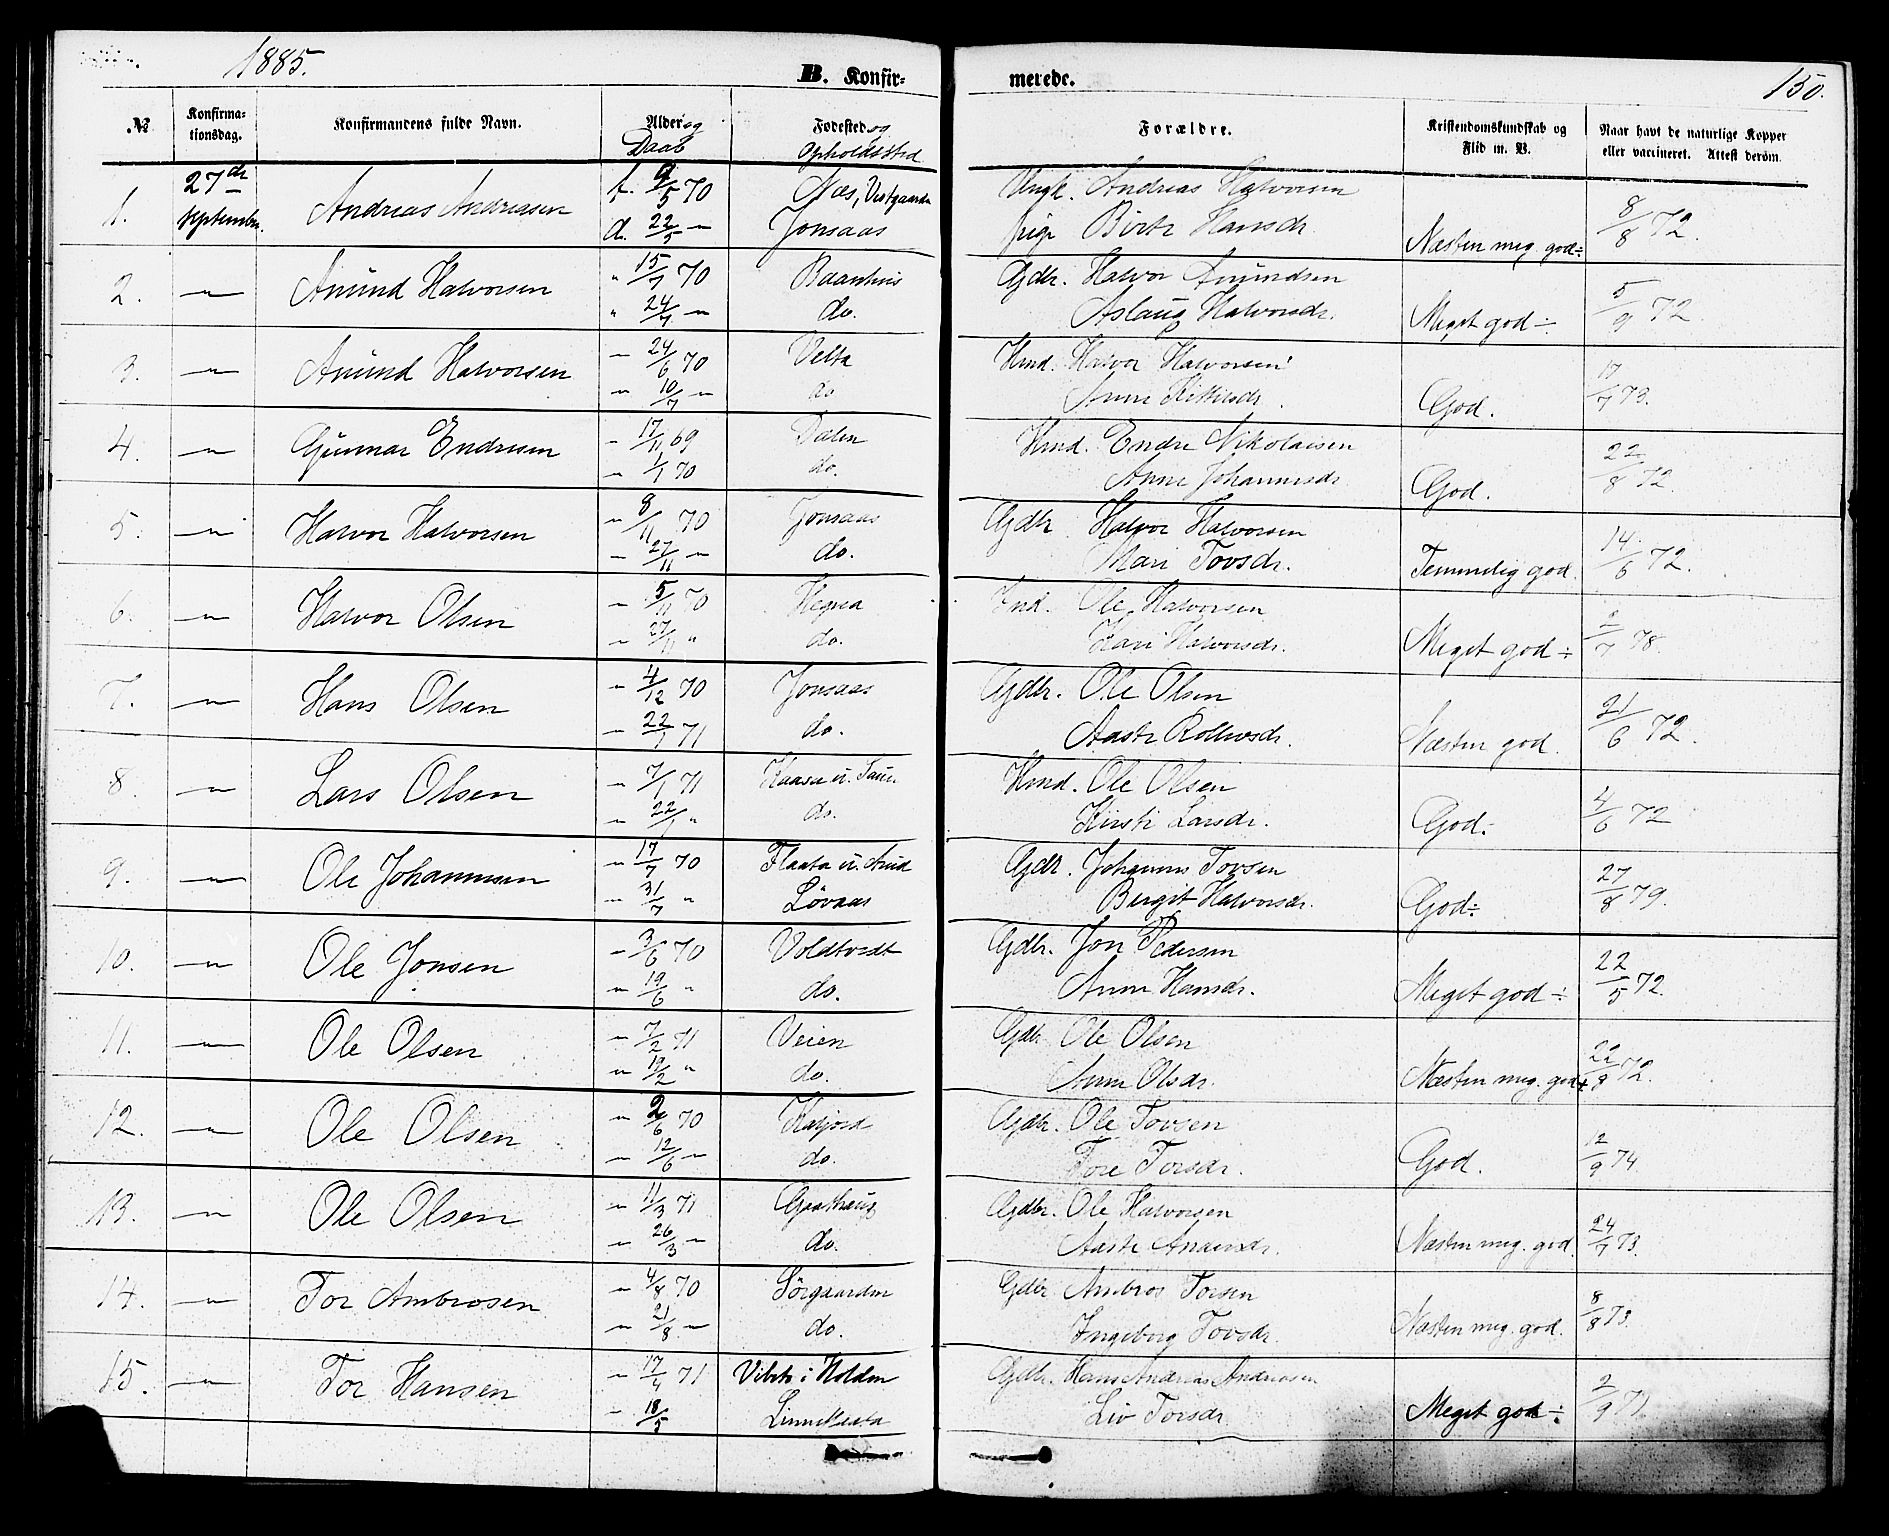 1885.
B. Konfir-
merede.
150.
№ Konfirma-tionsdag. Konfirmandens fulde Navn. Alder og Daab Fødested og Opholdssted Forældre. Kristendomskundskab og Flid m. V. Naar havt de naturlige Kopper eller vaccineret. Attest derom.
1. 27de Andreas Andreasen f. 9/5 70 Næs, Vestgaarden Ungk. Andreas Halvorsen Næsten meg. god÷ 8/8 72.
September. d. 22/5 — Jonsaas pige Birte Hansdr
2. — Amund Halvorsen " 15/7 70 Baanhus Gdbr. Halvor Amundsen Meget god ÷ 5/9 72.
" 24/7 — do. Aslaug Halvorsdr.
3. — Amund Halvorsen — 24/6 70 Velta Hmd. Halvor Halvorsen God. 17/7 73.
— 10/7 — do Anne Kittilsdr.
4. — Gunnar Endresen — 17/11 69 Dalen Hmd. Endre Nikolaisen God. 22/8 72.
— 1/1 70 do. Anne Johannesdr.
5. — Halvor Halvorsen — 8/11 70 Jonsaas Gdbr Halvor Halvorsen Temmelig god. 14/6 72.
— 27/11 — do. Mari Tovsdr.
6. — Halvor Olsen — 5/11 70 Hegna Ind. Ole Halvorsen Meget god ÷ 2/7 78.
— 27/11 " do. Kari Halvorsdr.
7. — Hans Olsen — 4/12 70 Jonsaas Gdbr. Ole Olsen Næsten god. 21/6 72.
— 22/1 71 do. Aaste Rollevsdr.
8. — Lars Olsen — 7/1 71 Kaasa u. Hmd. Ole Olsen God. 4/6 72
— 22/1 " do. Kirsti Larsdr.
9. — Ole Johannesen — 17/7 70 Flaata u. Gdbr. Johannes Tovsen God÷ 27/8 79.
— 31/7 " Løvaas Birgit Halvorsdr.
10. — Ole Jonsen — 3/6 70 Voldtvedt Gdbr. Jon Pedersen Meget god ÷ 22/5 72.
— 19/6 " do. Anne Hansdr.
11. — Ole Olsen — 7/2 71 Veien Gdbr Ole Olsen Næsten meg. god+ 22/8 72.
— 19/2 " do. Anne Olsdr.
12. — Ole Olsen — 2/6 70 Kasjord Gdbr. Ole Tovsen God. 12/9 74
— 12/6 — do. Tore Torsdr.
13. — Ole Olsen — 11/3 71 Graathaug Gdbr. Ole Halvorsen Næsten meg. god. 24/7 73.
— 26/3 — do. Aaste Andersdr.
14. — Tor Ambrosen — 4/8 70 Sørgaarden Gdbr Ambros Torsen Næsten meg. god. 8/8 73.
— 21/8 — do. Ingeborg Tovsdr.
15. — Tor Hansen — 17/4 71 i Holden Gdbr. Hans Andreas Andreasen Meget god ÷. 2/9 71.
— 18/5 Liv Torsdr